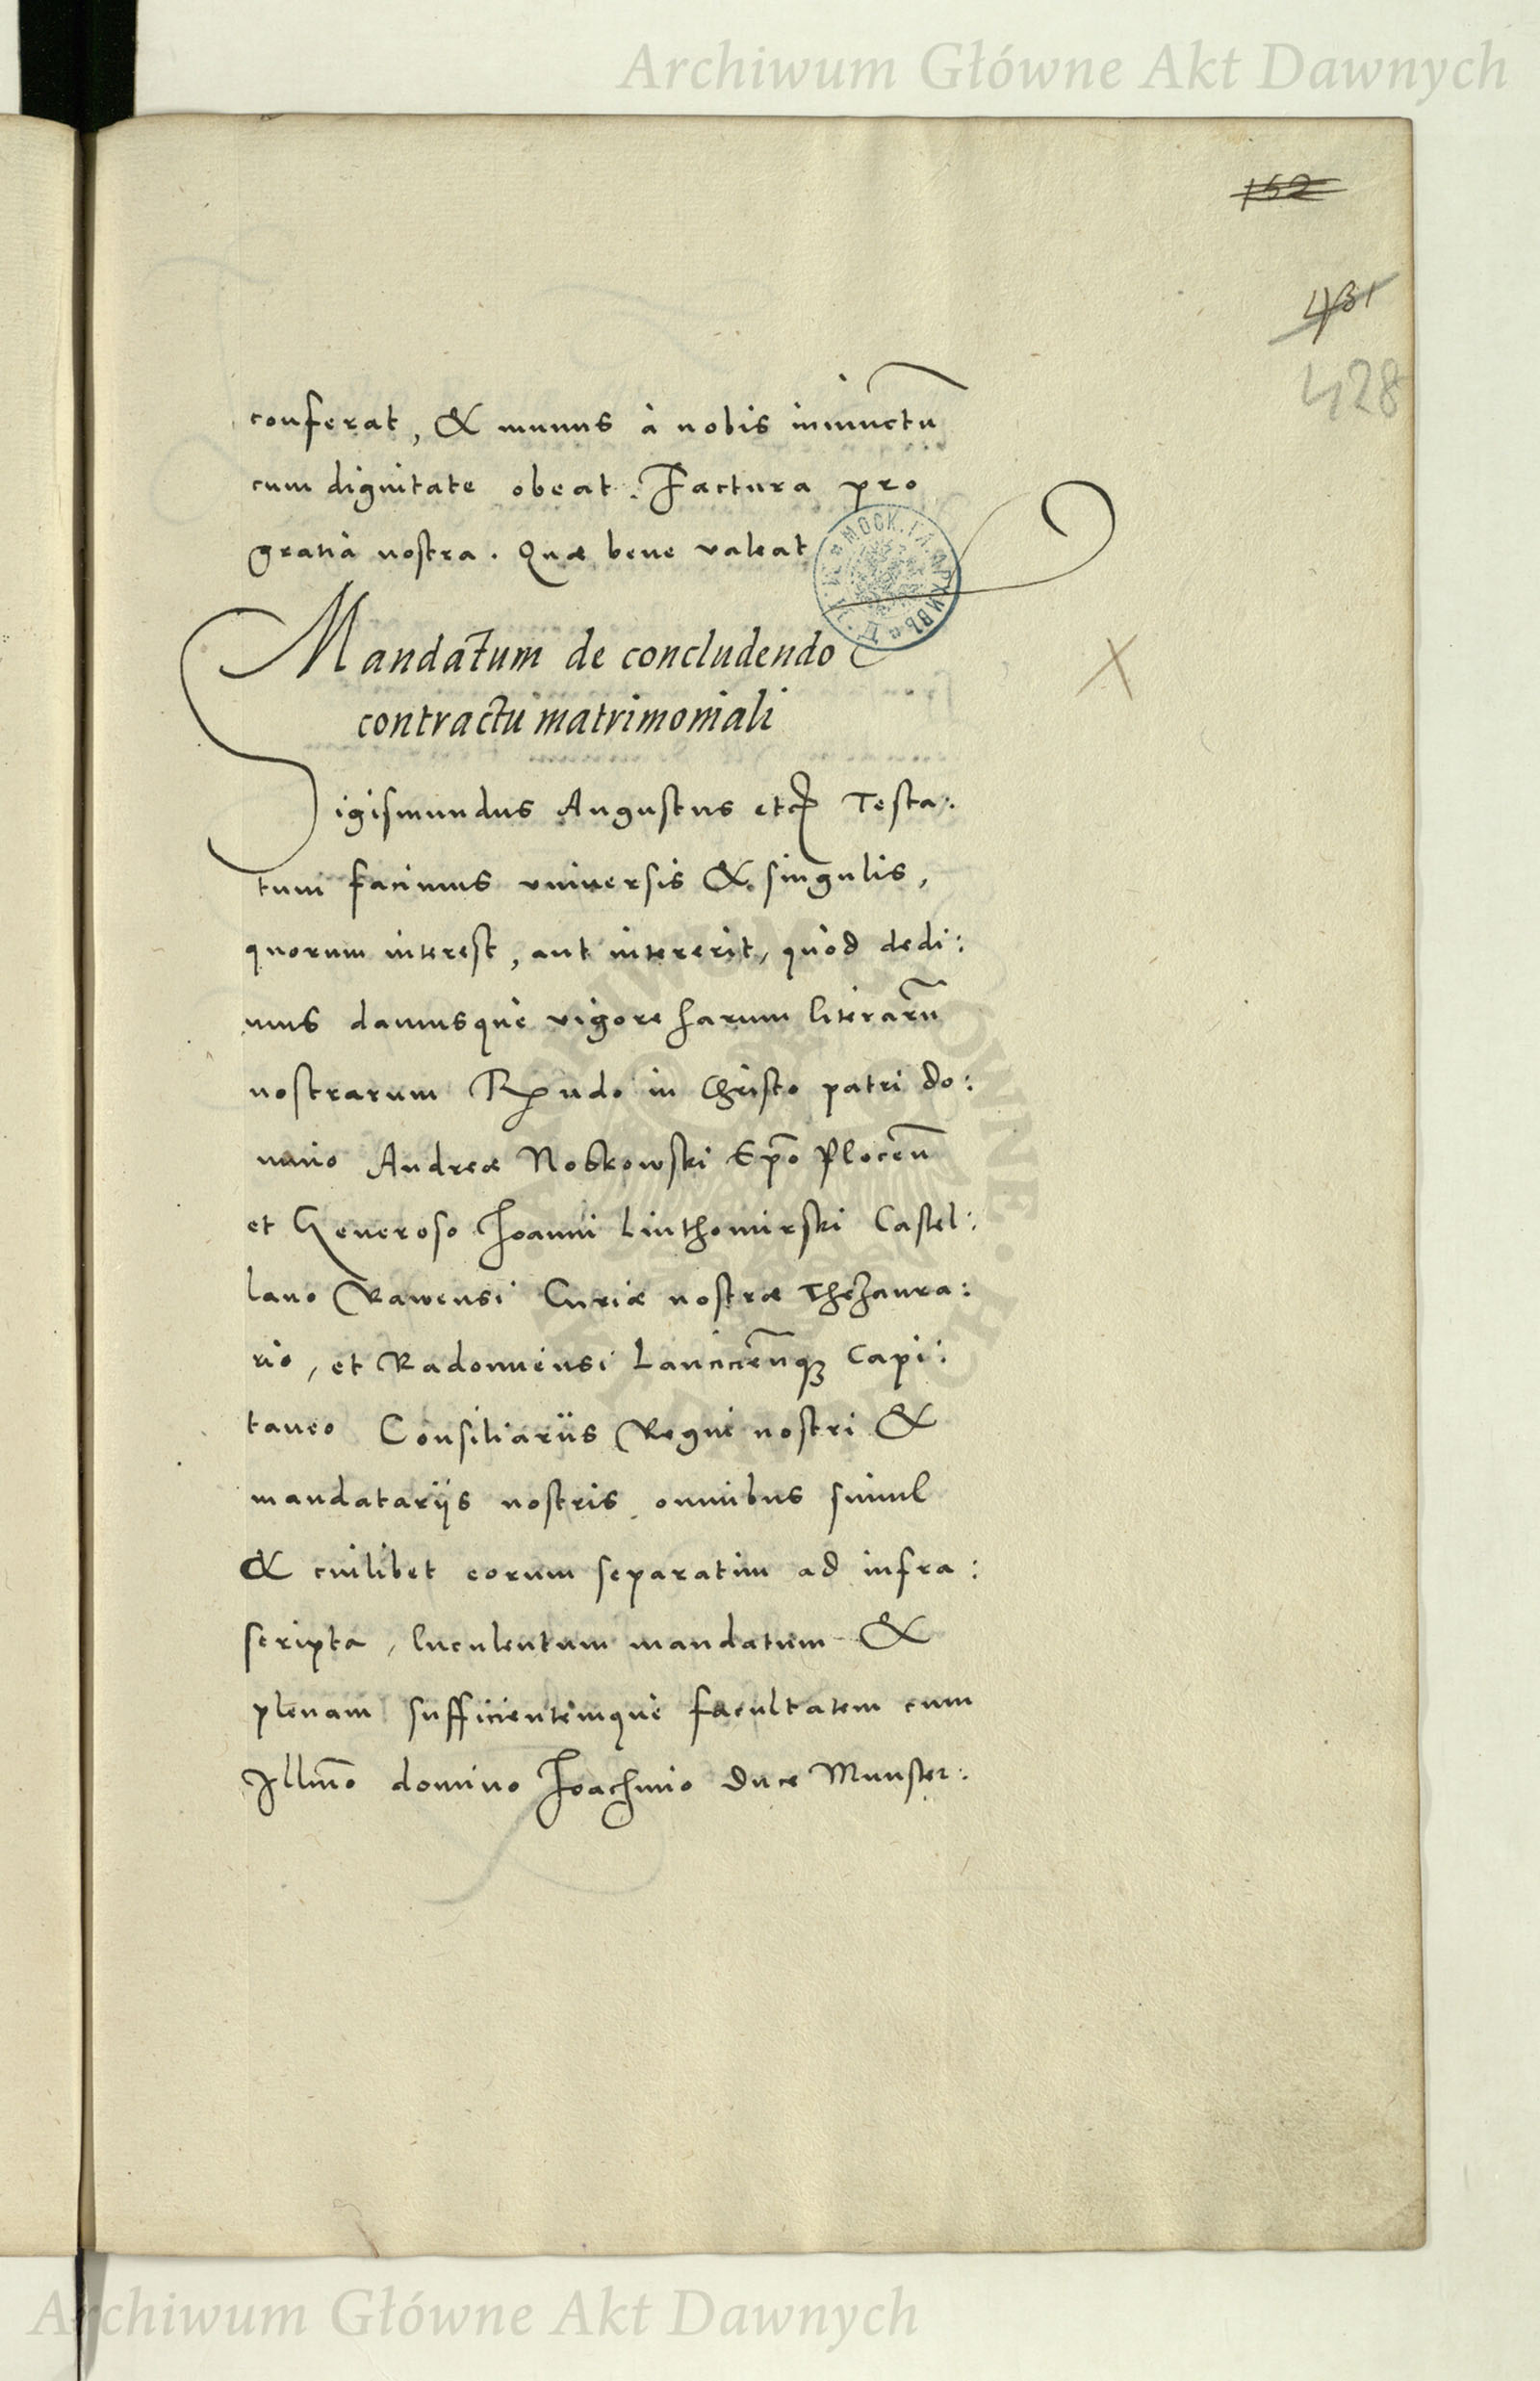 Archiwum Główne Akt Dawnych
152
431
428
conferat, & munus à nobis iniunctū
cum dignitate obeat. Factura pro
gratia nostra. Quæ bene valeat
Mandatum de concludendo
contractu matrimoniali
Sigismundus Augustus etc Testa:
tum facimus vniuersis & singulis,
quorum interest, aut intererit, quòd dedi:
mus damusque vigore harum literarū
nostrarum Rndo in Christo patri do:
mino Andreæ Noskowski Epo Plocen
et Generoso Joanni Linthomirski Castel:
lano Rawensi Curiæ nostræ Thezaura:
rio, et Radomiensi Lancicienqz Capi:
taneo Consiliariis Regni nostri &
mandatarijs nostris omnibus simul
& cuilibet eorum separatim ad infra:
scripta, luculentum mandatum &
plenam sufficientemque facultatem cum
Illmo domino Joachimo Duce Munster:
Archiwum Główne Akt Dawnych